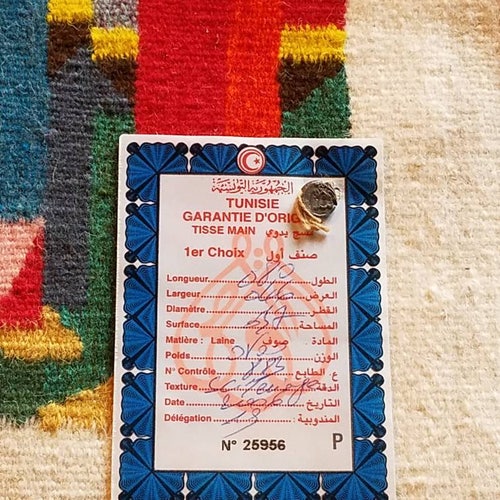 الجمهورية التونسية
TUNISIE
GARANTIE D'ORIG
TISSE MAIN نسج يدوي
1er Choix صنف أول
Longueur الطول
Largeur العرض
Diamètre القطر
Surface المساحة
Matière : Laine صوف المادة
Poids الوزن
N° Contrôle ع. الطابع
Texture الدقة
Date التاريخ
Délégation المندوبية
N° 25956 P